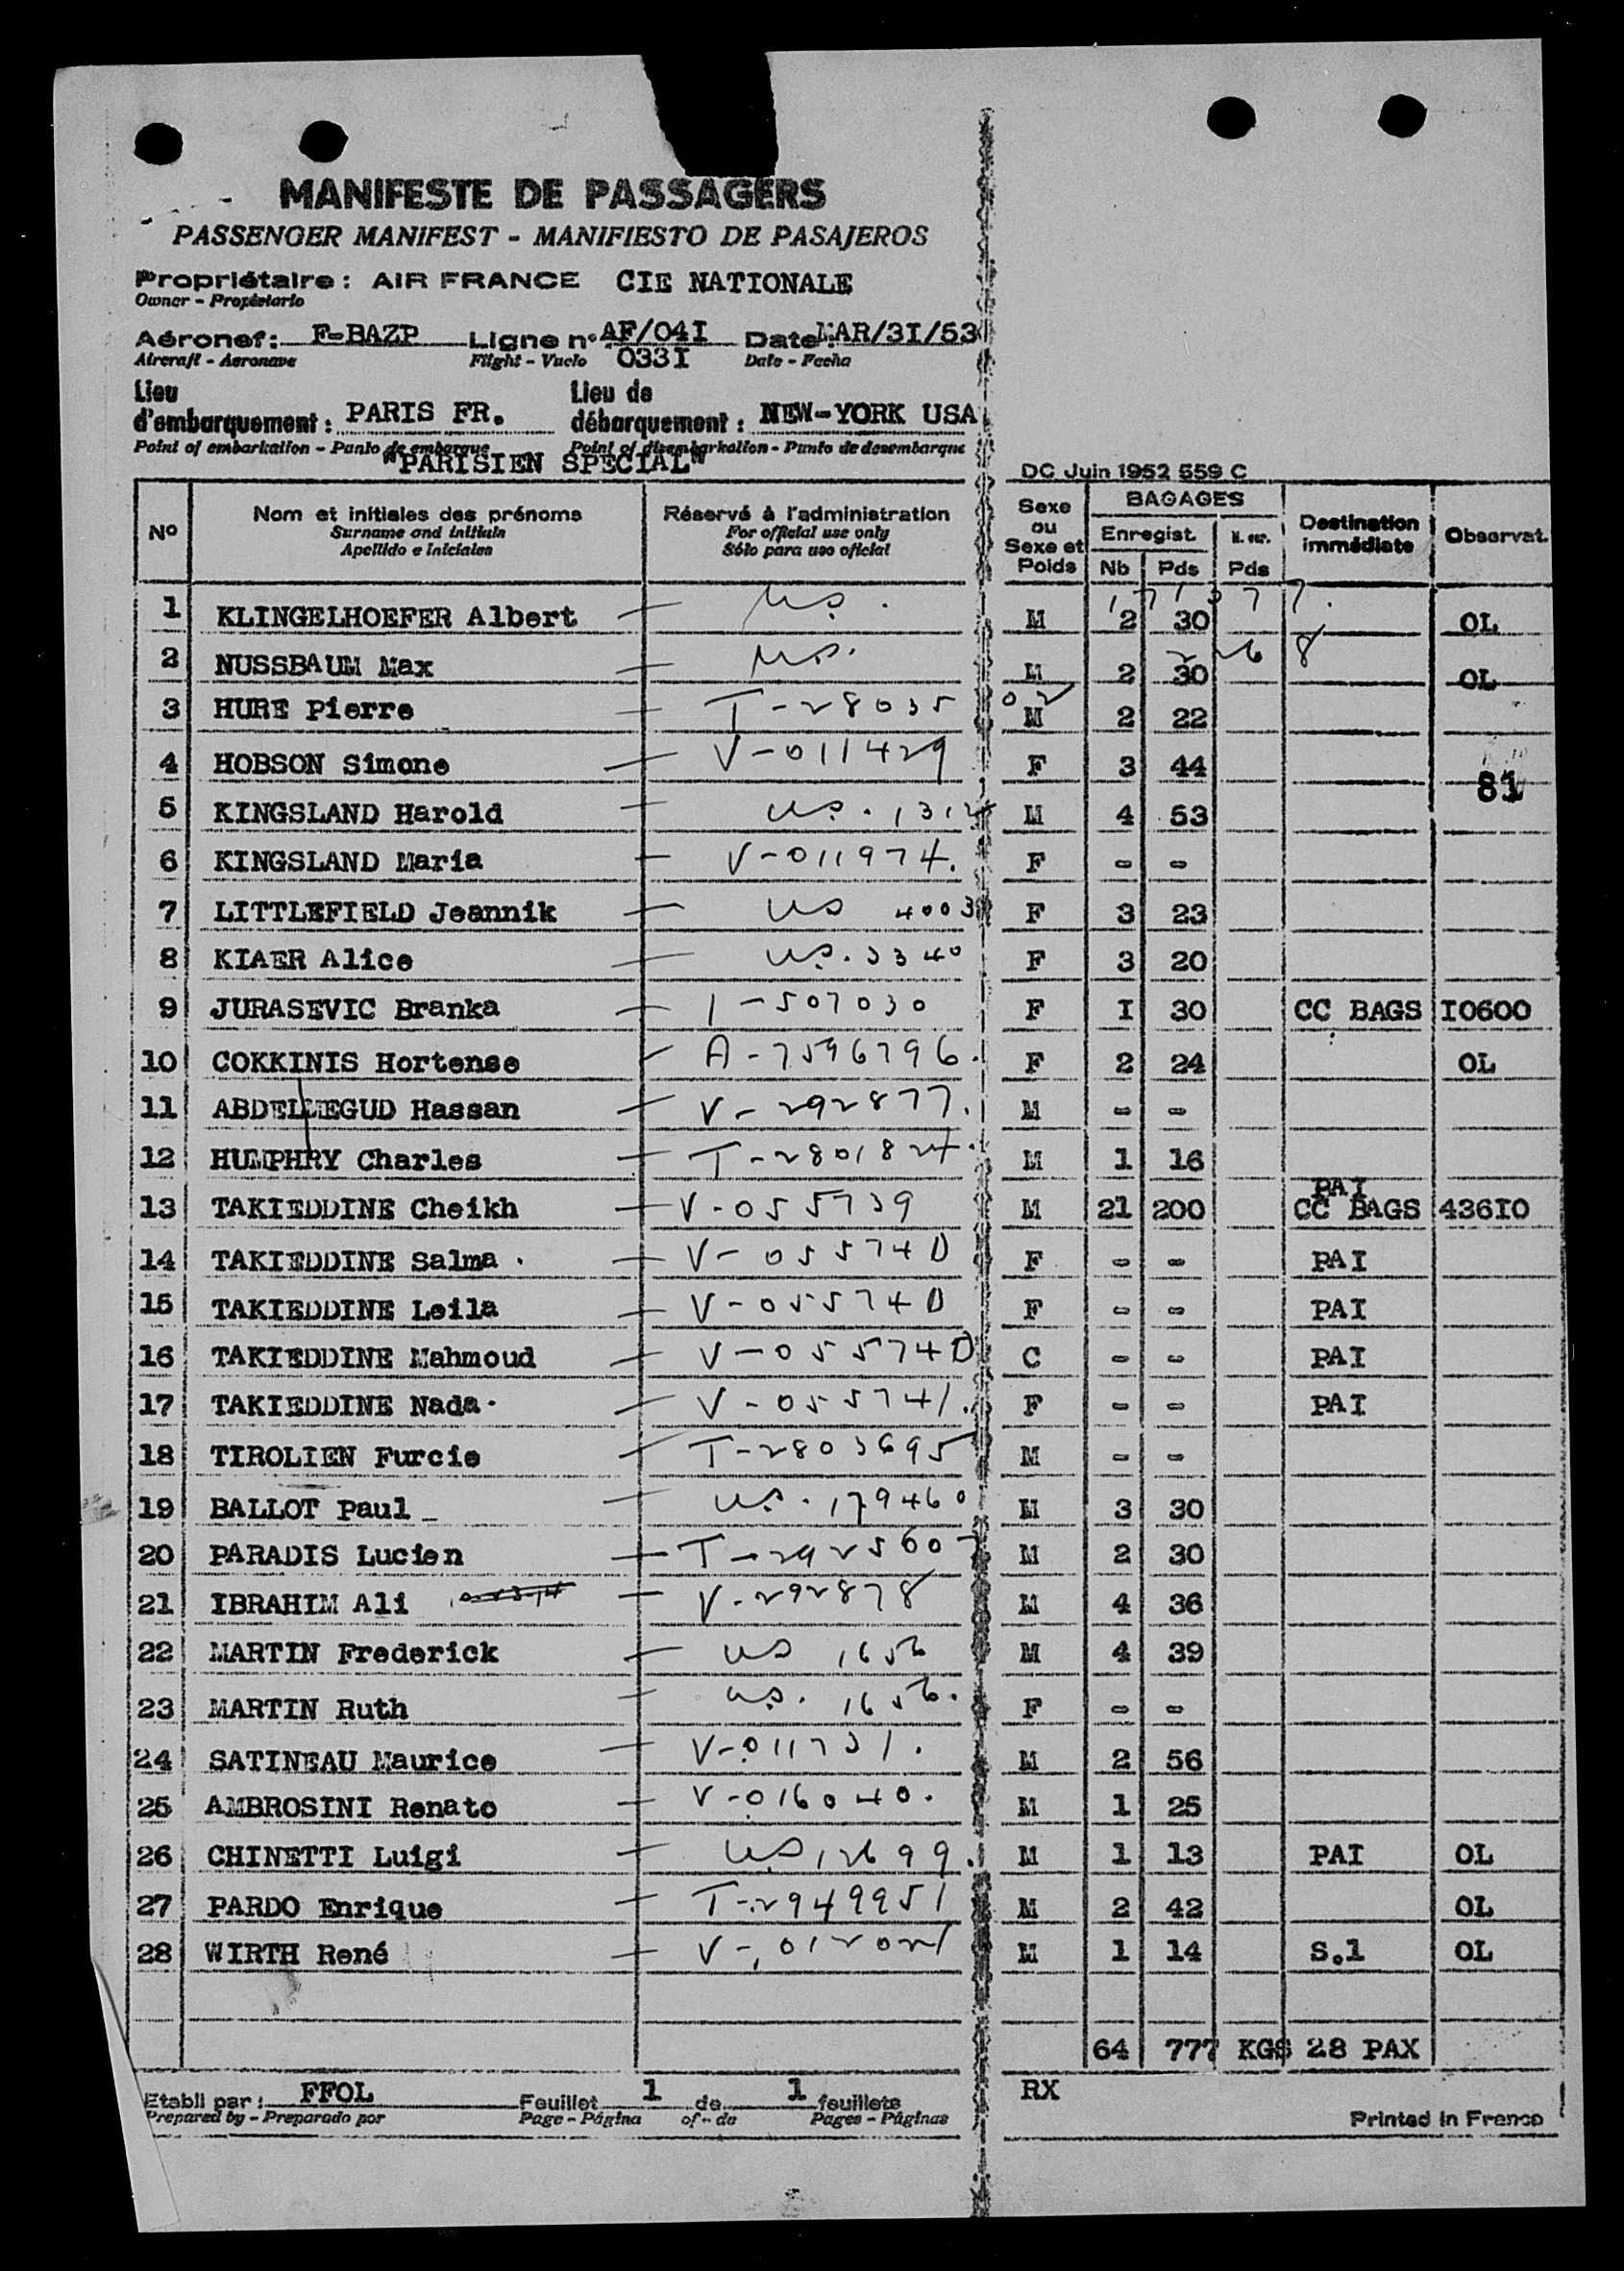 MANIFESTE DE PASSAGERS
PASSENGER MANIFEST - MANIFIESTO DE PASAJEROS
Propriétaire : AIR FRANCE CIE NATIONALE
Owner - Propietario
Aéronef : F-BAZP Ligne n° AF/04I Date : MAR/3I/53
Aircraft - Aeronave Flight - Vuelo 033I Date - Fecha
Lieu d'embarquement : PARIS FR. Lieu de débarquement : NEW-YORK USA
Point of embarkation - Punto de embarque Point of disembarkation - Punto de desembarque
"PARISIEN SPECIAL"
DC Juin 1952 559 C
N° Nom et initiales des prénoms Réservé à l'administration Sexe ou Sexe et Poids BAGAGES Destination immédiate Observat.
Surname and initials For official use only Enregist. N. enr.
Apellido e iniciales Sólo para uso oficial Nb Pds Pds
1 KLINGELHOEFER Albert — US. 171377. M 2 30 OL
2 NUSSBAUM Max — US. 2268 M 2 30 OL
3 HURE Pierre — T-2803502 M 2 22
4 HOBSON Simone — V-011429 F 3 44
81
5 KINGSLAND Harold — US. 1312 M 4 53
6 KINGSLAND Maria — V-011974. F - -
7 LITTLEFIELD Jeannik — US 4003 F 3 23
8 KIAER Alice — US. 3340 F 3 20
9 JURASEVIC Branka — I-507030 F I 30 CC BAGS I0600
10 COKKINIS Hortense — A-7596796. F 2 24 OL
11 ABDELMEGUD Hassan — V-292877. M - -
12 HUMPHRY Charles — T-2801824. M 1 16
13 TAKIEDDINE Cheikh — V-055739 M 21 200 PAI CC BAGS 436I0
14 TAKIEDDINE Salma . — V-055740 F - - PAI
15 TAKIEDDINE Leila — V-055740 F - - PAI
16 TAKIEDDINE Mahmoud — V-055740 C - - PAI
17 TAKIEDDINE Nada. — V-055741. F - - PAI
18 TIROLIEN Furcie — T-2803695 M - -
19 BALLOT Paul — US. 179460 M 3 30
20 PARADIS Lucien — T-2925607 M 2 30
21 IBRAHIM Ali — V-292878 M 4 36
22 MARTIN Frederick — US 1656 M 4 39
23 MARTIN Ruth — US. 1656. F - -
24 SATINEAU Maurice — V-011731. M 2 56
25 AMBROSINI Renato — V-016040. M 1 25
26 CHINETTI Luigi — US 12699. M 1 13 PAI OL
27 PARDO Enrique — T-2949951 M 2 42 OL
28 WIRTH René — V-012021 M 1 14 S.1 OL
64 777 KGS 28 PAX
Etabli par : FFOL Feuillet 1 de 1 feuillets RX
Prepared by - Preparado por Page - Página of - de Pages - Páginas
Printed in France